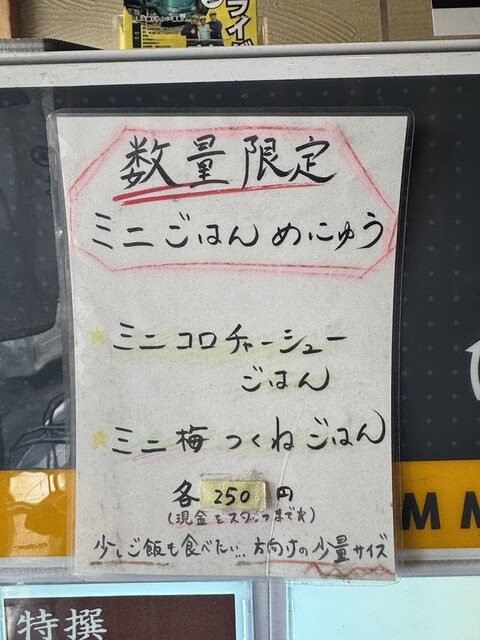 ライダ
数量限定
ミニごはんめにゅう
ミニコロチャーシュー
ごはん
ミニ梅つくねごはん
各250円
(現金をスタッフまで☆)
少しご飯も食べたい…方向けの少量サイズ
MM
特撰